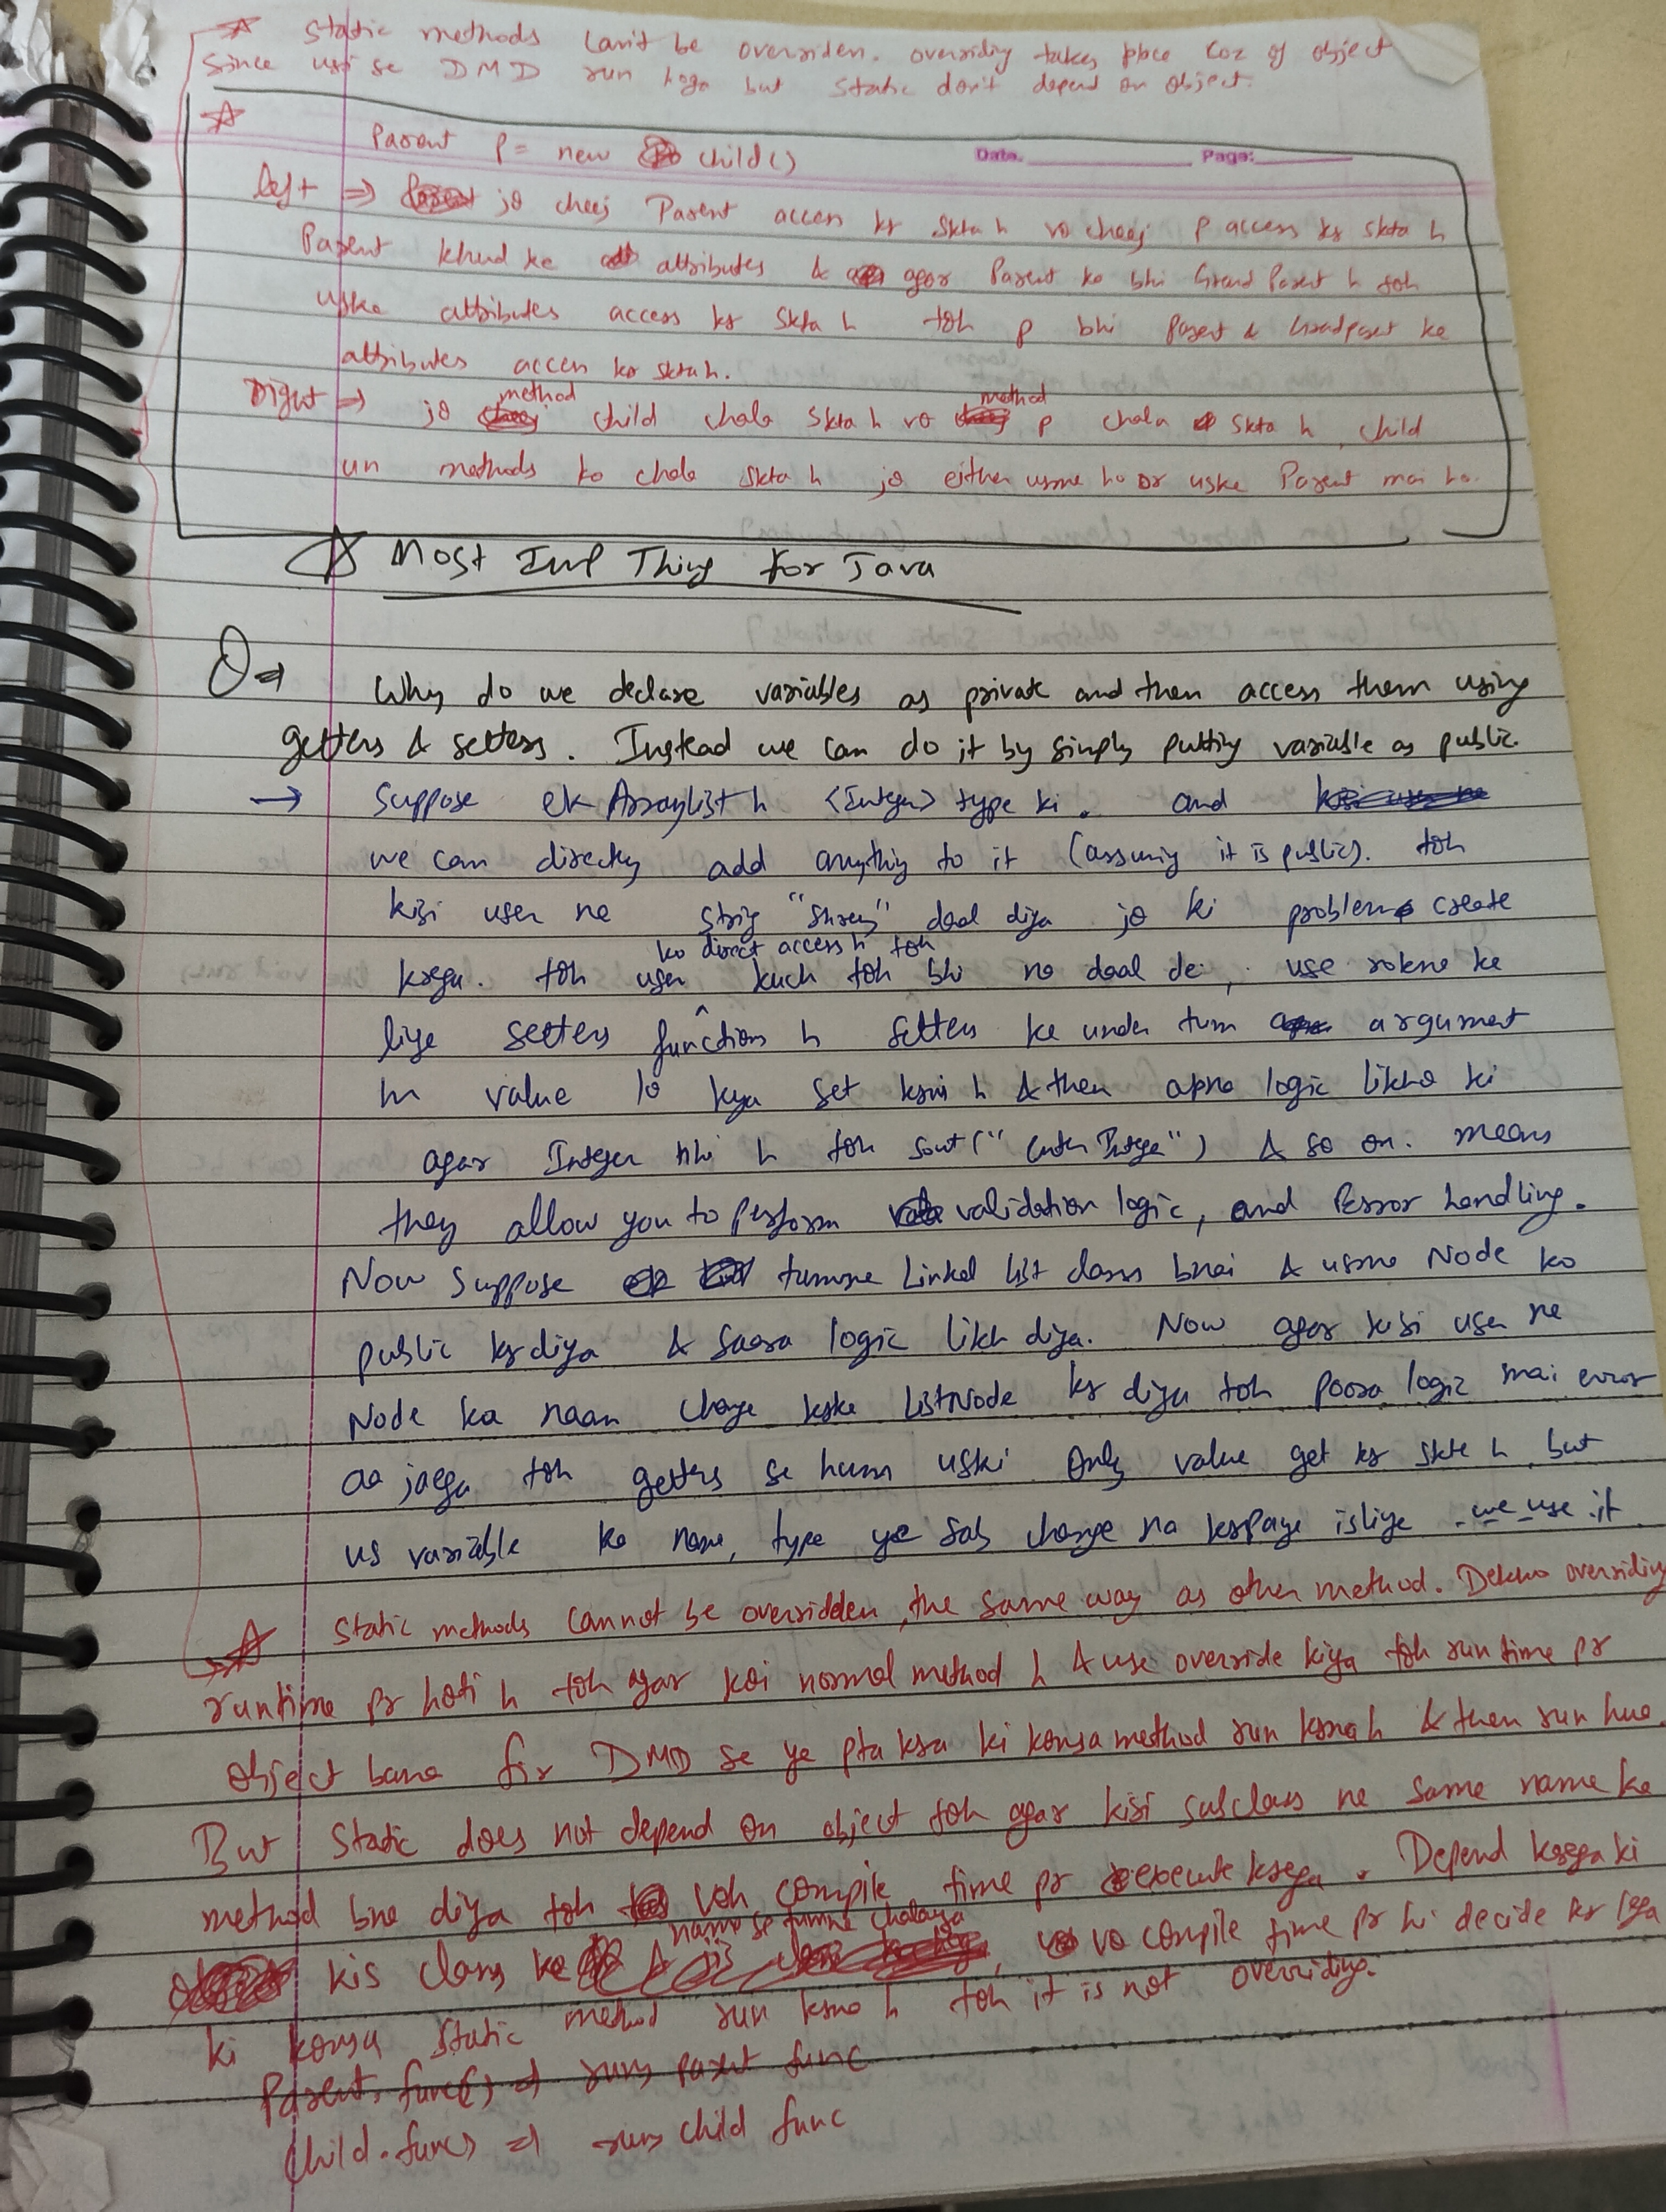 ☆ Static methods can't be overriden. overriding takes place coz of object
Since usi se DMD run hoga but static don't depend on object.
☆
Parent p = new child()
Date. Page:
left ⇒ jo cheej Parent access kr skta h vo cheej p access kr skta h
Parent khud ke attributes & agar Parent ka bhi Grand Parent h toh
uske attributes access kr skta h toh p bhi parent & Grandparent ke
attributes access kr skta h.
right ⇒ jo method child chala skta h vo method p chala skta h, child
un methods ko chala skta h jo either usme ho or uske Parent mai ho.
☆ Most Imp Thing for Java
Q⇒ Why do we declare variables as private and then access them using
getters & setters. Instead we can do it by simply putting variable as public.
→ Suppose ek ArrayList h <Integer> type ki. and
we can directly add anything to it (assuming it is public). toh
kisi user ne string "Shrey" daal diya jo ki problem create
krega. toh user ko direct access h toh kuch toh bhi na daal de, use rokne ke
liye setters function h setters ke under tum argument
m value lo kya set krni h & then apna logic likho ki
agar Integer nhi h toh sout("Enter Integer") & so on. means
they allow you to perform validation logic, and Error handling.
Now suppose tumne Linked list class bnai & usme Node ko
public kr diya & saara logic likh diya. Now agar kisi user ne
Node ka naam change krke ListNode kr diya toh poora logic mai error
aa jaega toh getters se hum uski only value get kr skte h but
us variable ka name, type ye sab change na krpaye isliye we use it
☆ Static methods cannot be overridden, the same way as other method. Dekho overriding
runtime pr hoti h toh agar koi normal method h & use override kiya toh runtime pr
object bana fir DMD se ye pta kra ki konsa method run krna h & then run hua.
But static does not depend on object toh agar kisi subclass ne same name ke
method bna diya toh voh compile time pr execute krega. Depend krega ki
kis class ke name se tumne chalaya, vo compile time pr hi decide kr lega
ki konsa static method run krna h toh it is not overriding.
Parent.func() ⇒ runs parent func
Child.func() ⇒ runs child func